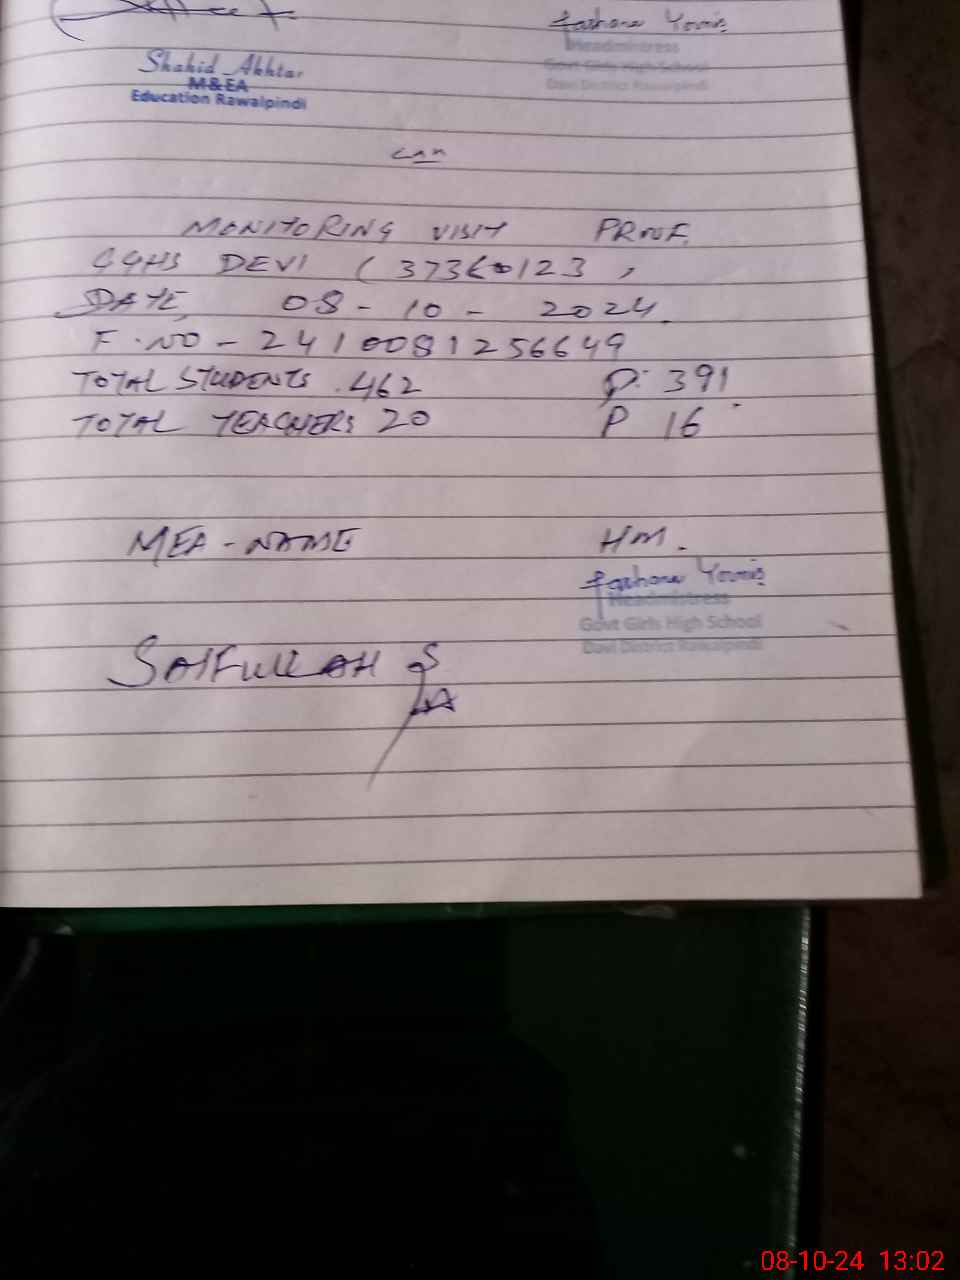 Farhana Younis
Headmistress
Govt Girls High School
Davi District Rawalpindi
Shahid Akhtar
M&EA
Education Rawalpindi
MONITORING VISIT PROOF.
GGHS DEVI (37360123,
DATE, 08-10-2024.
F.NO-2410081256649
TOTAL STUDENTS. 462 P: 391
TOTAL TEACHERS 20 P 16
MEA-NAME HM.
Farhana Younis
Headmistress
Govt Girls High School
Davi District Rawalpindi
SAIFULLAH
08-10-24 13:02